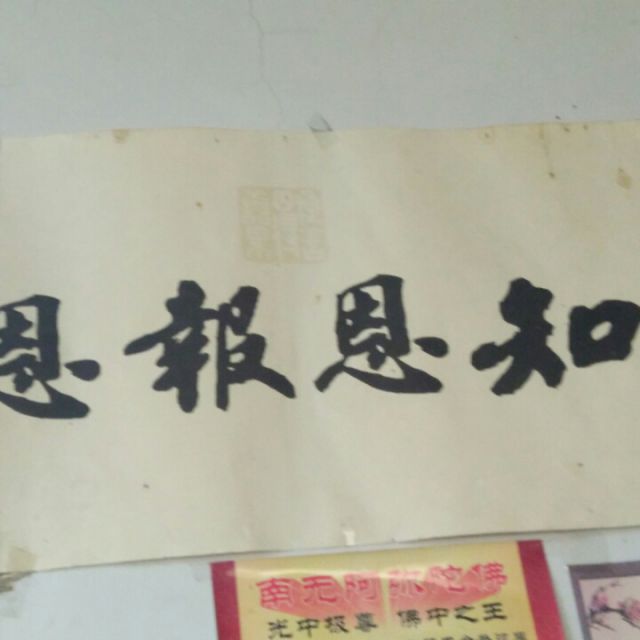 知恩報恩
南无阿弥陀佛
光中极尊 佛中之王